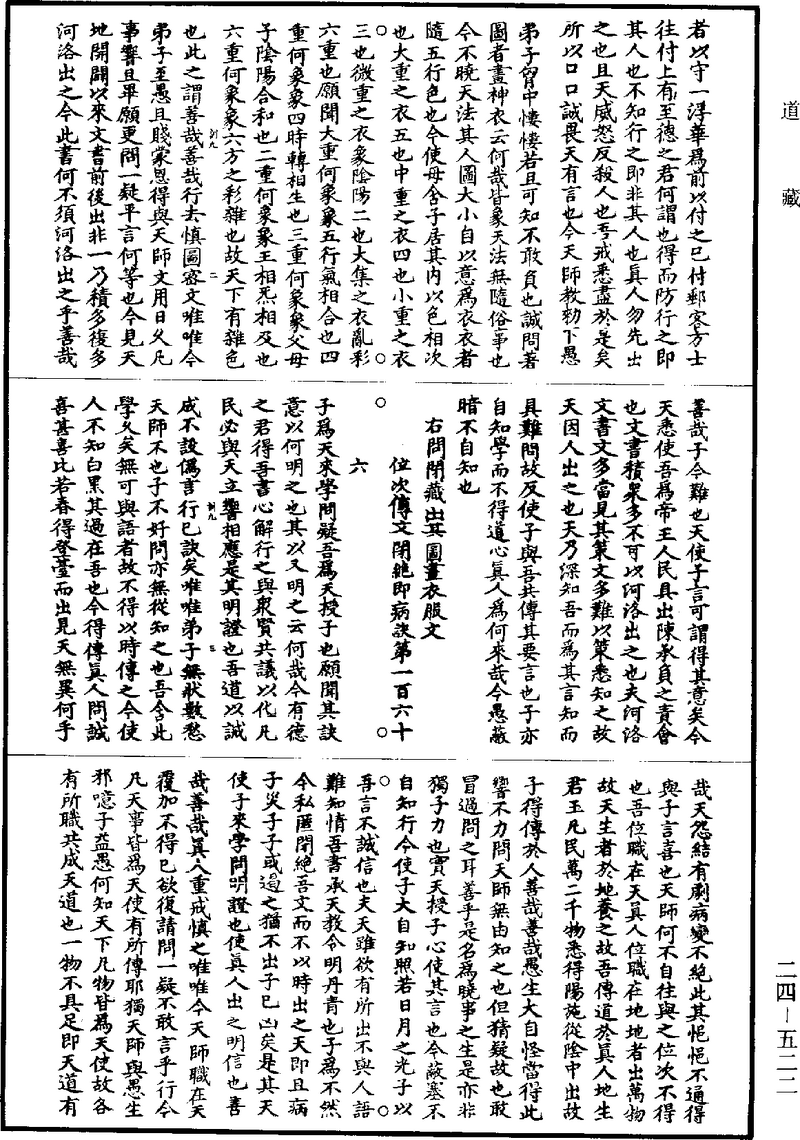 道藏
者以守一浮華爲前以付之已付郵客方士
往付上有至德之君何謂也得而防行之即
其人也不知行之即非其人也眞人勿先出
之也且天威怒反殺人也吾戒悉盡於是矣
所以口口誠畏天有言也今天師教勑下愚
弟子胷中慺慺若且可知不敢負也誠問著
圖者畫神衣云何哉皆象天法無隨俗事也
今不曉天法其人圖大小自以意爲衣衣者
隨五行色也今使母含子居其内以色相次
也大重之衣五也中重之衣四也小重之衣
三也微重之衣象陰陽二也大集之衣亂彩
六重也願聞大重何象象五行氣相合也四
重何象象四時轉相生也三重何象象父母
子陰陽合和也二重何象象王相炁相及也
六重何象象六方之彩雜也故天下有雜色
也此之謂善哉善哉行去慎圖密文唯唯今
弟子至愚且賤蒙恩得與天師文用日久凡
事響且畢願更問一疑平言何等也今見天
地開闢以來文書前後出非一乃積多復多
河洛出之今此書何不須河洛出之乎善哉
善哉子今難也天使子言可謂得其意矣今
天悉使吾爲帝王人民具出陳承負之責會
也文書積衆多不可以河洛出之也夫河洛
文書文多當見其策文多難以策悉知之故
天因人出之也天乃深知吾而爲其言知而
具難問故反使子與吾共傳其要言也子亦
自知學而不得道心眞人爲何來哉今愚蔽
暗不自知也
右問閉藏出其圖畫衣服文
位次傳文閉絕即病訣第一百六十
六
子爲天來學問疑吾爲天授子也願聞其訣
意以何明之也其以又明之云何哉今有德
之君得吾書心解行之與衆賢共議以化凡
民必與天立響相應是其明證也吾道以誠
成不設僞言行已訣矣唯唯弟子無狀數愁
天師不也子不好問亦無從知之也吾含此
學久矣無可與語者故不得以時傳之今使
人不知白黑其過在吾也今得傳眞人問誠
喜甚喜比若春得登臺而出見天無異何乎
哉天怨結有劇病變不絕此其悒悒不通得
與子言喜也天師何不自往與之位次不得
也吾位職在天眞人位職在地地者出萬物
故天生者於地養之故吾傳道於眞人地生
君王凡民萬二千物悉得陽施從陰中出故
子得傳於人善哉善哉愚生大自怪當得此
響不力問天師無由知之也但猜疑故也敢
冒過問之耳善乎是名爲曉事之生是亦非
獨子力也實天授子心使其言也今蔽塞不
自知行今使子大自知照若日月之光子以
吾言不誠信也夫天雖欲有所出不與人語
難知情吾書承天教令明丹青也子爲不然
今私匿閉絕吾文而不以時出之天即且病
子災子子或過之猶不出子巳凶矣是其天
使子來學問明證也使眞人出之明信也善
哉善哉眞人重戒慎之唯唯今天師職在天
覆加不得已欲復請問一疑不敢言乎行今
凡天事皆爲天使有所傳耶獨天師與愚生
邪噫子益愚何知天下凡物皆爲天使故各
有所職共成天道也一物不具足即天道有
二四－五二二